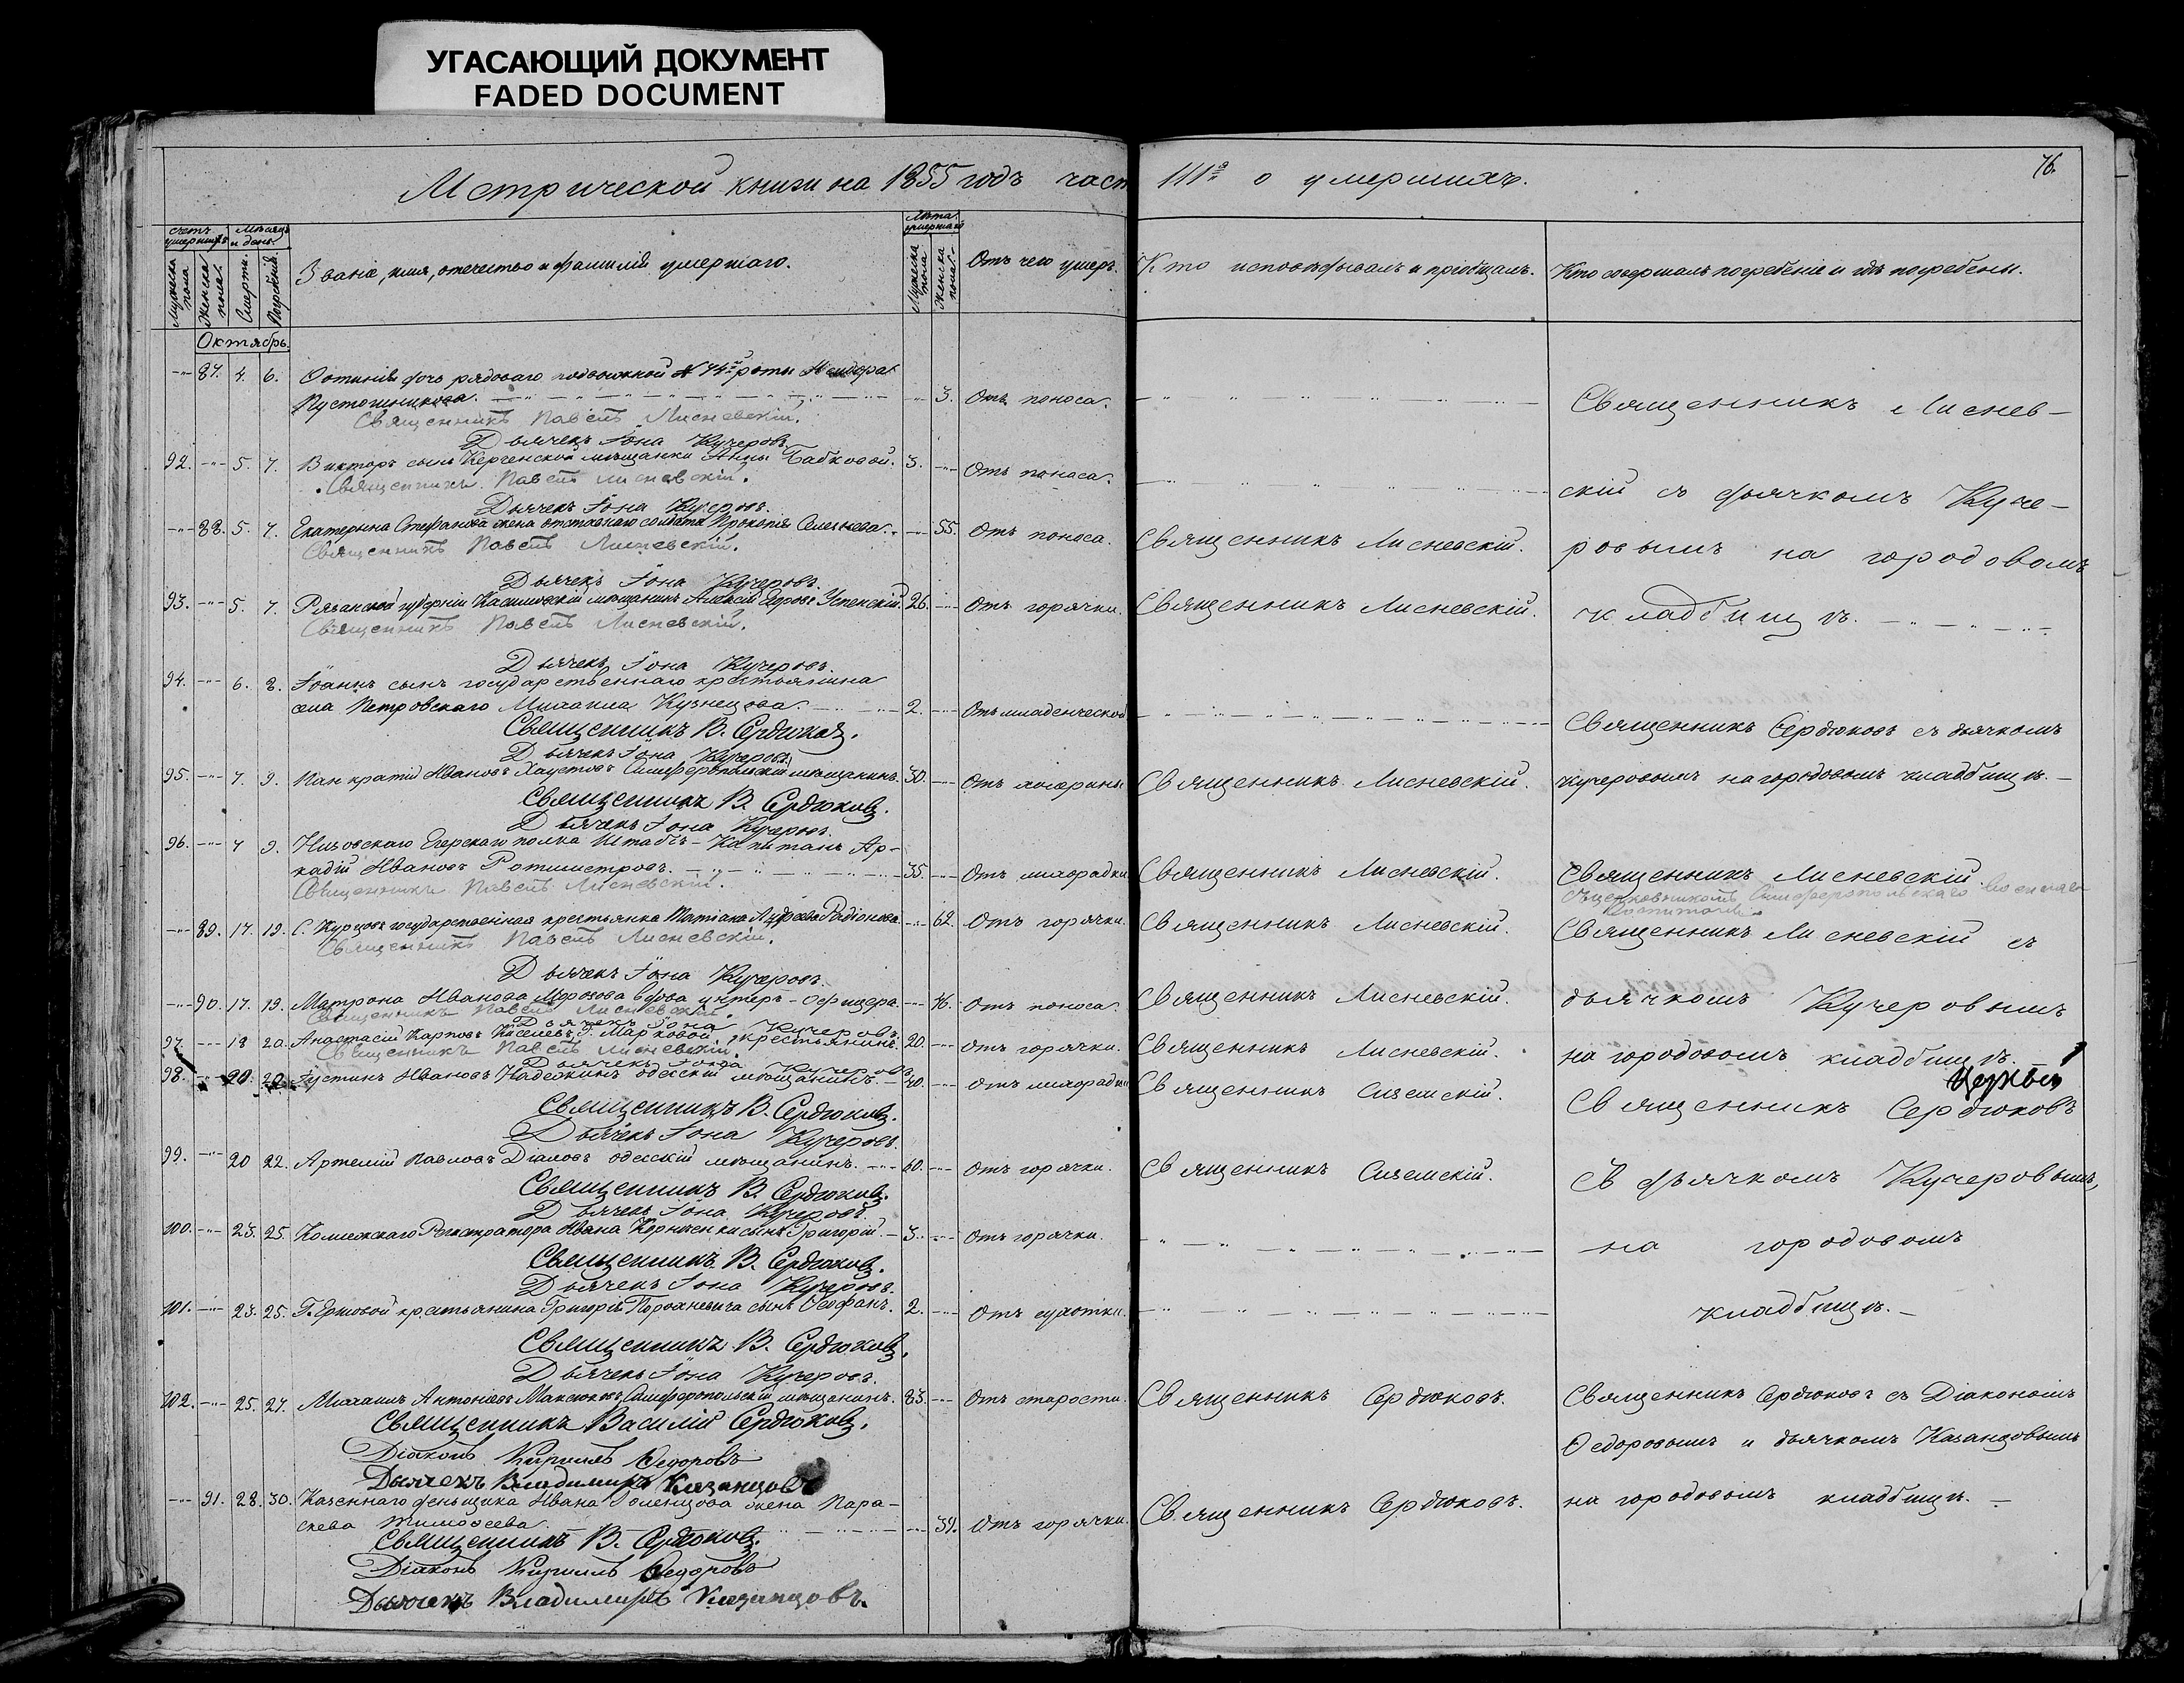 УГАСАЮЩИЙ ДОКУМЕНТ
FADED DOCUMENT
Метрической книги на 1855 годъ част III.я о умершихъ.
76.
Счетъ умершихъ
Мѣсяцъ и день.
Мужеска пола.
Женска пола.
Смерти.
Погребенія.
Званіе, имя, отечество и фамилія умершаго.
Лѣта умершаго
Мужеска пола
Женска пола.
Отъ чего умеръ.
Кто исповѣдывалъ и пріобщалъ.
Кто совершалъ погребеніе и гдѣ погребены.
Октябрь.
87. 4. 6. дочь рядоваго подвижной № 74й роты
Пустошникова. 3. Отъ поноса.
Священникъ Павелъ Лисневскій.
Дьячекъ Іона Кучеровъ.
92. 5. 7. Викторъ сынъ Керченской мѣщанки Анны Бабковой. 3. Отъ поноса.
Священникъ Павелъ Лисневскій.
Дьячекъ Іона Кучеровъ.
88. 5. 7. Екатерина Стефанова жена отставнаго солдата Прокопія Селезнева. 55. Отъ поноса. Священникъ Лисневскій.
Священникъ Павелъ Лисневскій.
Дьячекъ Іона Кучеровъ.
93. 5. 7. Рязанской губерніи Касимовскій мѣщанинъ Алексій Егоровъ Успенскій. 26. Отъ горячки. Священникъ Лисневскій.
Священникъ Павелъ Лисневскій.
Дьячекъ Іона Кучеровъ.
Священникъ Лиснев-
скій съ дьячкомъ Куче-
ровымъ на городовомъ
кладбищѣ.
94. 6. 8. Іоаннъ сынъ государственнаго крестьянина
села Петровскаго Михаила Кузнецова. 2. Отъ младенческой
Священникъ В. Сердюковъ.
Дьячекъ Іона Кучеровъ.
Священникъ Сердюковъ съ дьячкомъ
95. 7. 9. Панкратій Ивановъ Хаустовъ Симферопольскій мѣщанинъ. 30. Отъ Священникъ Лисневскій.
Кучеровымъ на городовомъ кладбищѣ.
Священникъ В. Сердюковъ.
Дьячекъ Іона Кучеровъ.
96. 7 9. Низовскаго Егерскаго полка Штабсъ-Капитанъ Ар-
кадій Ивановъ Ротмистровъ. 35. Отъ лихорадки Священникъ Лисневскій.
Священникъ Павелъ Лисневскій.
Священникъ Лисневскій
Симферопольскаго
89. 17. 19. С. Курцовъ государственная крестьянка Татіана Андреева Радіонова 62. Отъ горячки. Священникъ Лисневскій.
Священникъ Павелъ Лисневскій.
Дьячекъ Іона Кучеровъ.
Священникъ Лисневскій съ
90. 17. 19. Матрона Иванова Морозова вдова унтеръ-офицера. 76. Отъ поноса. Священникъ Лисневскій.
дьячкомъ Кучеровымъ
Священникъ Павелъ Лисневскій.
Дьячекъ Іона Кучеровъ.
97. 18 20. Анастасій Карповъ Киселевъ, Г. Марковой, крестьянинъ. 20. Отъ горячки. Священникъ Лисневскій.
на городовомъ кладбищѣ.
Священникъ Павелъ Лисневскій.
Дьячекъ Іона Кучеровъ
98. 20. 22. Іустинъ Ивановъ Надежинъ одесскій мѣщанинъ. 40. Отъ лихорадки Священникъ Сиземскій.
Священникъ В. Сердюковъ.
Дьячекъ Іона Кучеровъ.
Священникъ Сердюковъ
99. 20 22. Артемій Павловъ Діаловъ одесскій мѣщанинъ. 60. Отъ горячки. Священникъ Сиземскій.
Съ дьячкомъ Кучеровымъ,
Священникъ В. Сердюковъ.
Дьячекъ Іона Кучеровъ.
100. 23. 25. Коллежскаго Регистратора Ивана Корниченки сынъ Григорій. 3. Отъ горячки.
на городовомъ
Священникъ В. Сердюковъ.
Дьячекъ Іона Кучеровъ.
101. 23. 25. Г. крестьянина Григорія сынъ Ѳеофанъ. 2. Отъ сухотки.
кладбищѣ.
Священникъ В. Сердюковъ.
Дьячекъ Іона Кучеровъ.
102. 25. 27. Михаилъ Антоніевъ Максюковъ Симферопольскій мѣщанинъ. 83. Отъ старости. Священникъ Сердюковъ.
Священникъ Василій Сердюковъ.
Діаконъ Кириллъ Ѳедоровъ
Дьячекъ Владимиръ Казанцовъ
Священникъ Сердюковъ съ Діакономъ
Ѳедоровымъ и дьячкомъ Казанцовымъ
на городовомъ кладбищѣ.
91. 28. 30. Казеннаго деньщика Ивана Голенцова жена Пара-
скева Тимоѳеева. 39. Отъ горячки. Священникъ Сердюковъ.
Священникъ В. Сердюковъ.
Діаконъ Кириллъ Ѳедоровъ
Дьячекъ Владимиръ Казанцовъ.